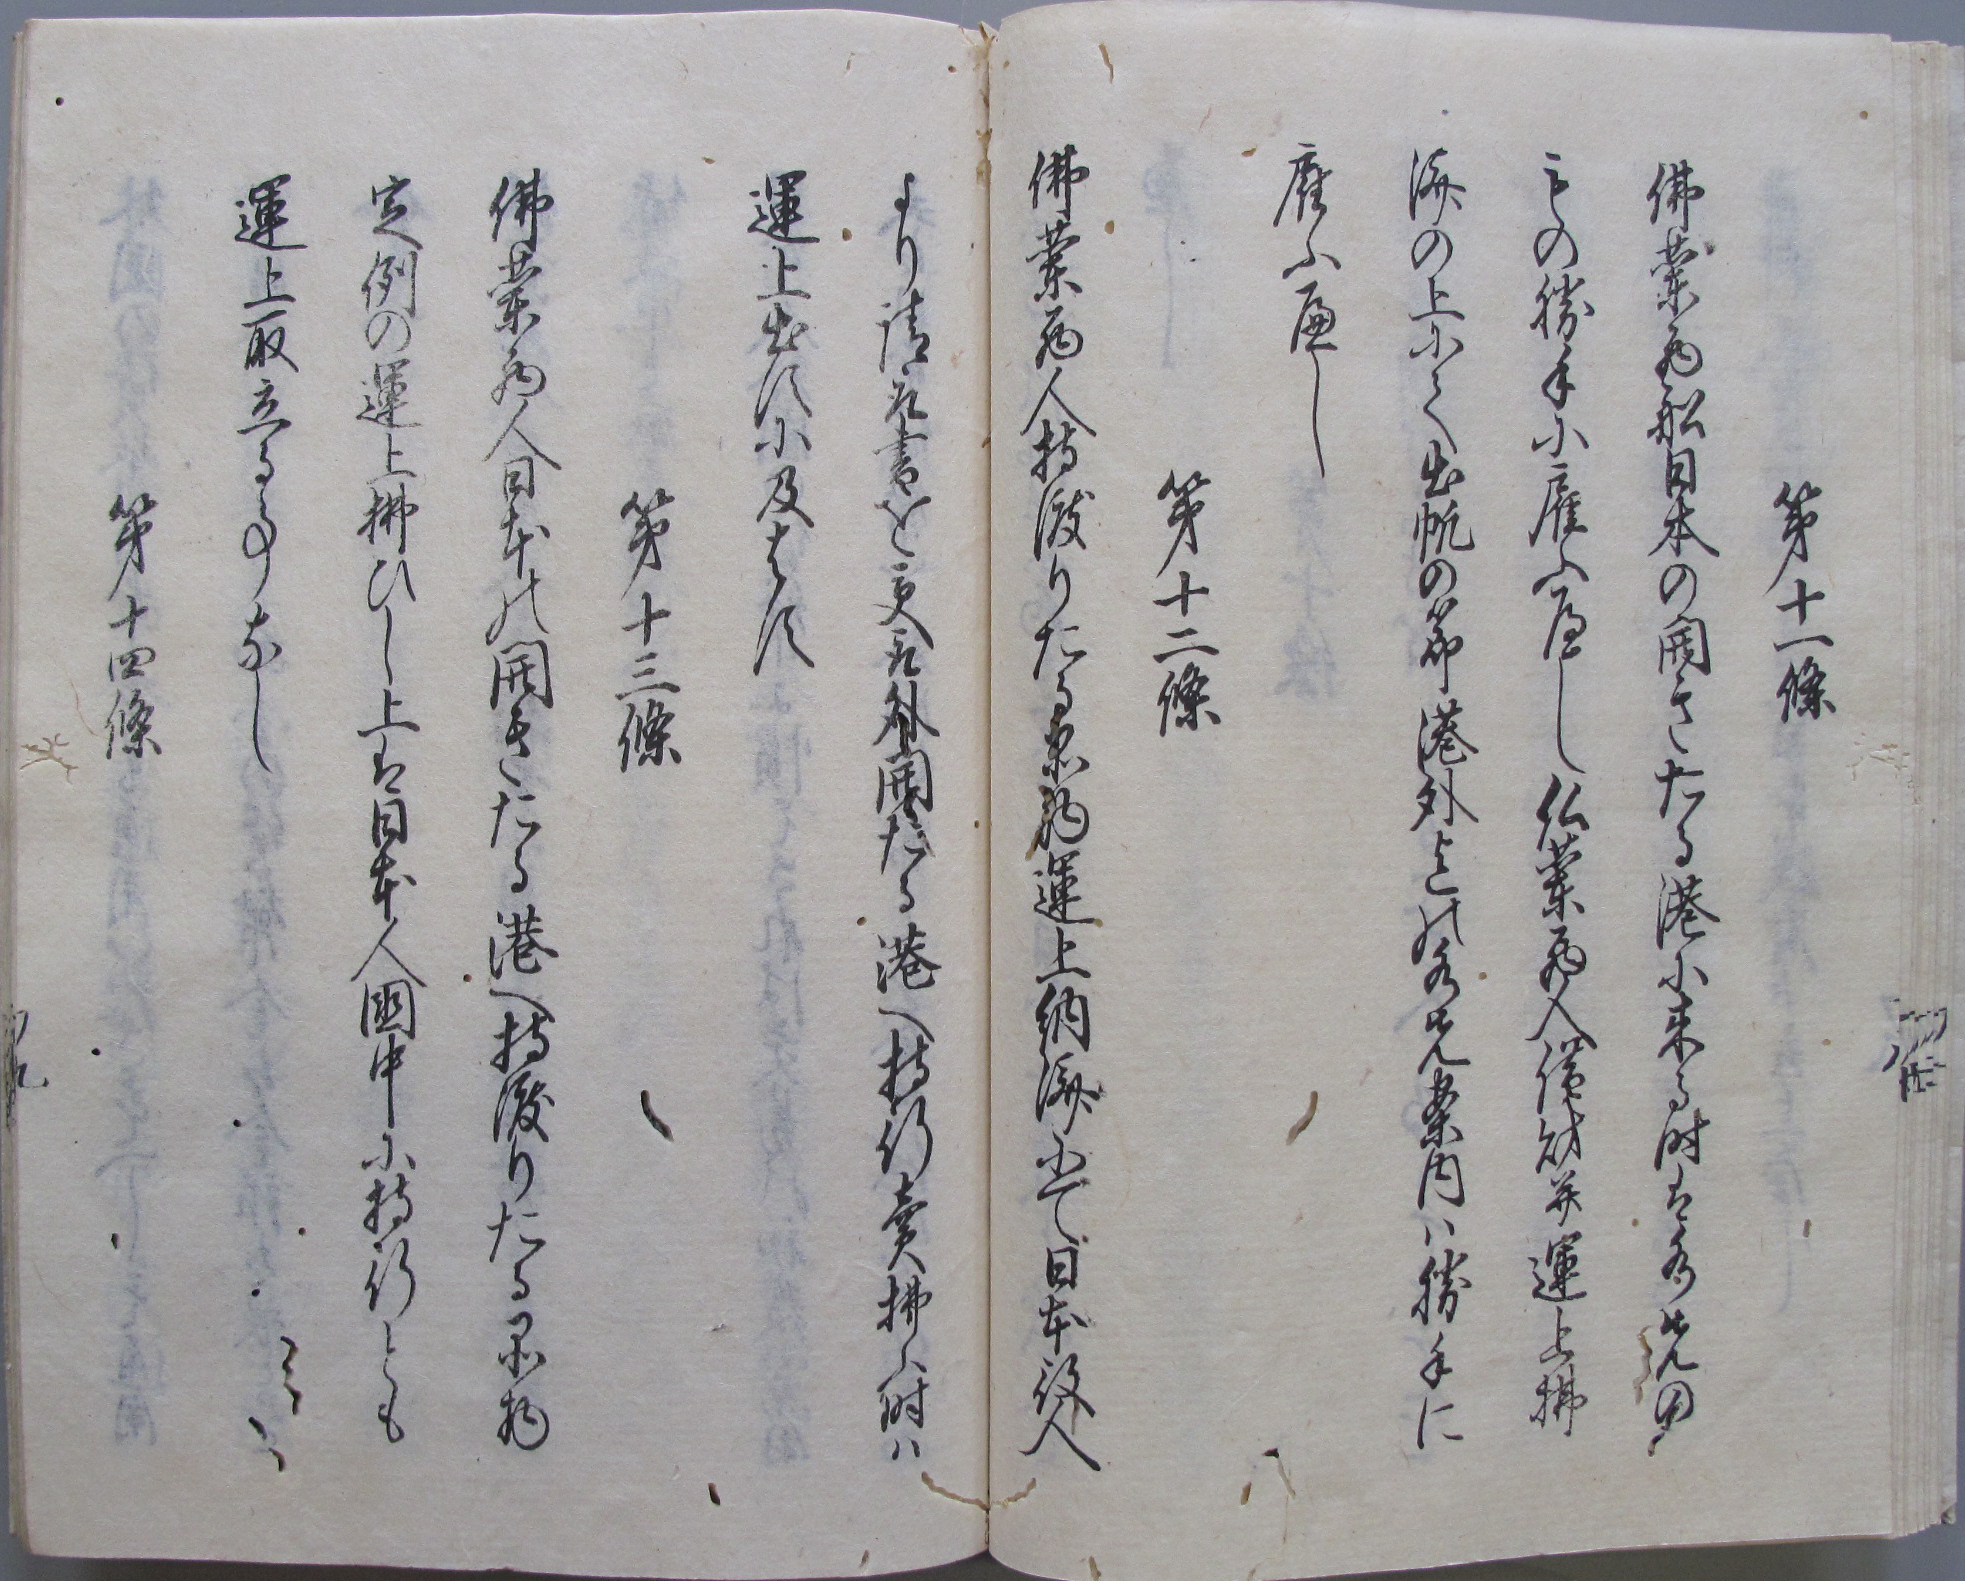 第十一條
佛蘭西船日本の開きたる港に来る時は水先案
内の勝手に雇ふへし仏蘭西人借財并運上拂
済の上にて出帆の節港外迄の水先案内ハ勝手に
雇ふへし
第十二條
佛蘭西人持渡りたる品物運上納済にて日本役人
より請取書を受取外開たる港へ持行賣拂ふ時ハ
運上出すに及はす
第十三條
佛蘭西人日本の開きたる港へ持渡りたる品物
定例の運上拂ひし上は日本人國中に持行とも
運上取立る事なし
第十四條